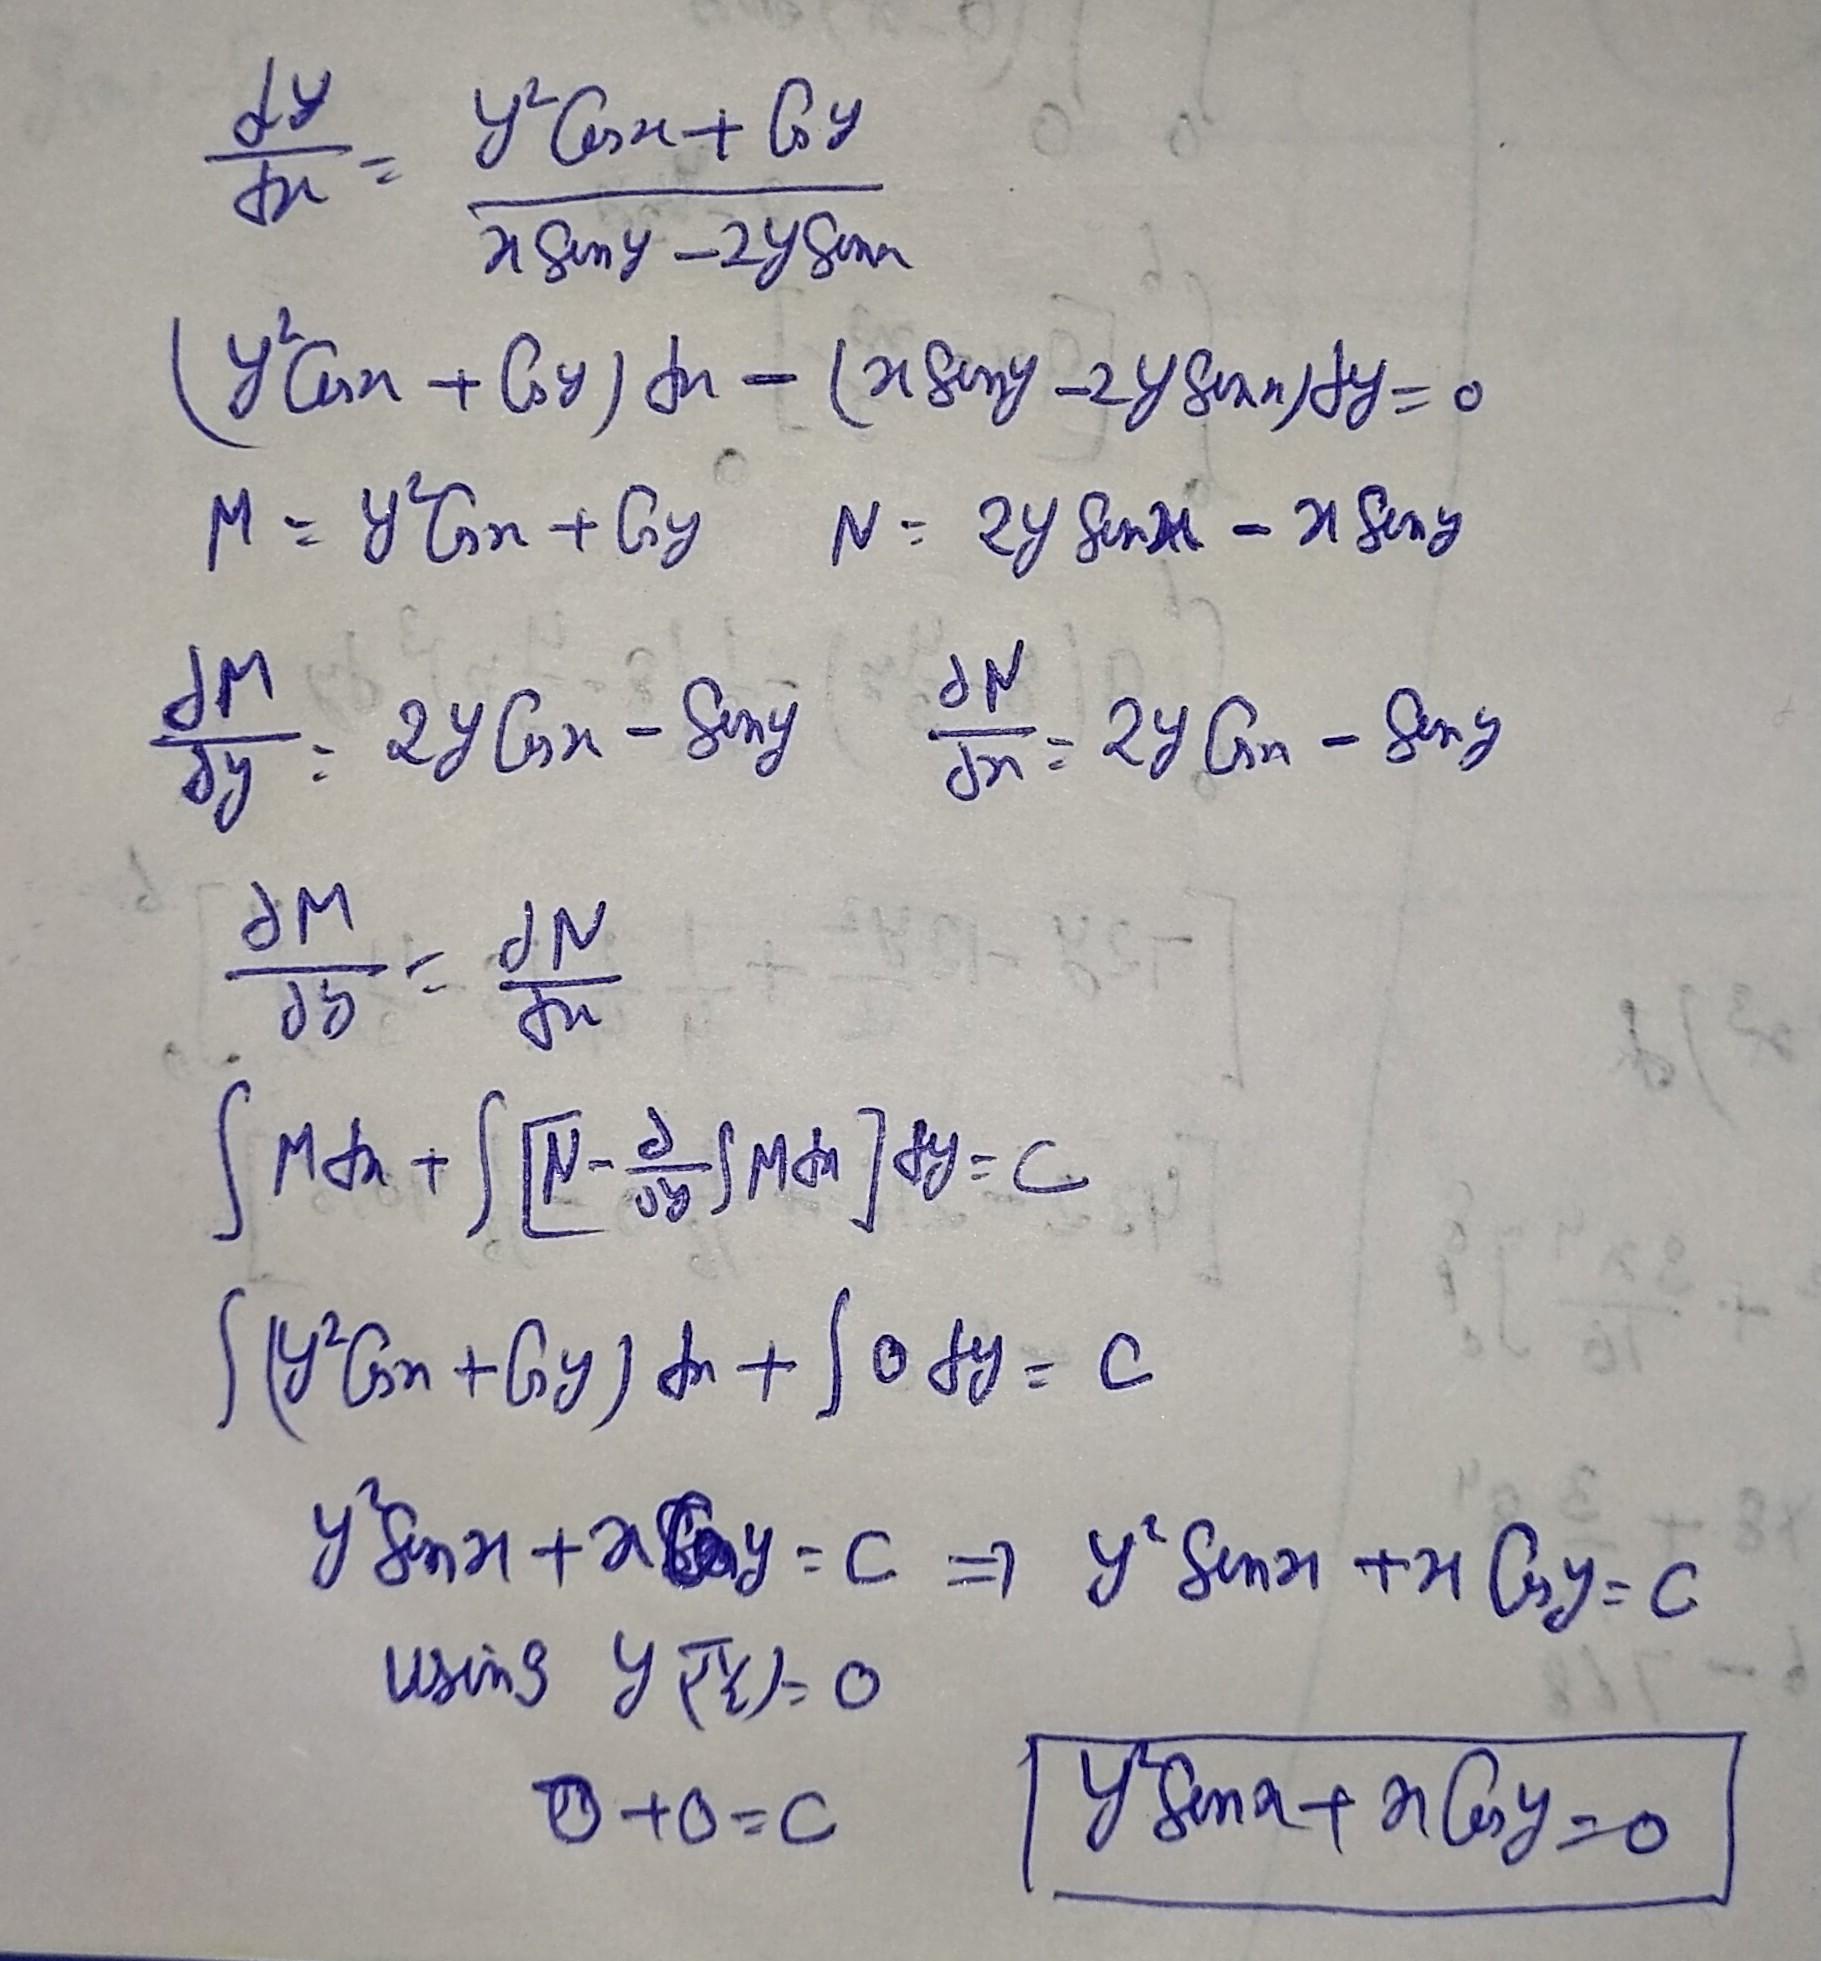 dy/dx = (y² Cosx + Cosy)/(x Siny - 2y Sinx)
(y² Cosx + Cosy) dx - (x Siny - 2y Sinx) dy = 0
M = y² Cosx + Cosy N = 2y Sinx - x Siny
∂M/∂y = 2y Cosx - Siny ∂N/∂x = 2y Cosx - Siny
∂M/∂y = ∂N/∂x
∫ M dx + ∫ [N - ∂/∂y ∫ M dx] dy = C
∫ (y² Cosx + Cosy) dx + ∫ 0 dy = C
y² Sinx + x Cosy = C ⇒ y² Sinx + x Cosy = C
using y(π/2) = 0
0 + 0 = C
y² Sinx + x Cosy = 0